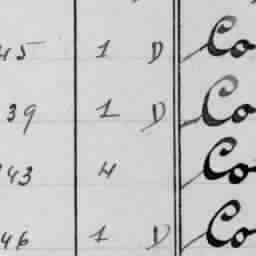 45 1 D Co
39 1 D Co
43 4 Co
46 1 D Co